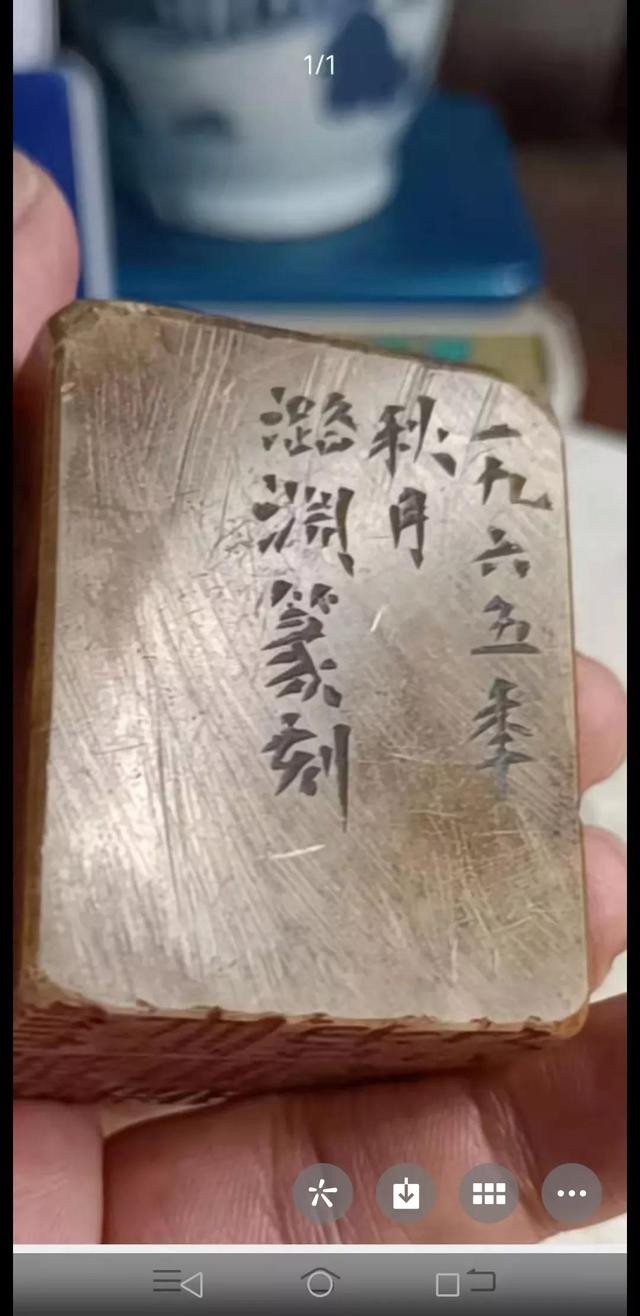 1/1
一九六五秊
秋月
潞淵篆刻